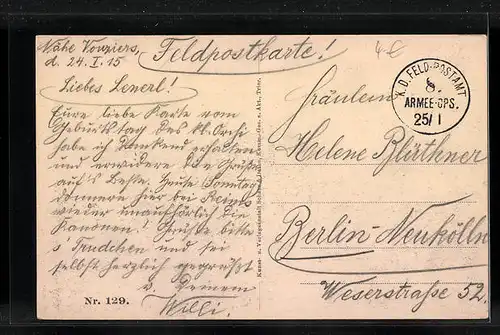 Nähe Vouziers,
d. 24. I. 15
Feldpostkarte!
4 €
Liebes Lenerl!
Eure liebe Karte vom
Geburtstag des kl.
habe ich dankend erhalten
und erwidere die Grüße
auf's Beste. Heute Sonntag
donnern hier bei Reims
wieder unaufhörlich die
Kanonen! Grüße bitte
s' Trudchen und sei
selbst herzlich gegrüßt
v. Deinem
Willi.
Nr. 129.
Kunst- u. Verlagsanstalt Schaar & Dathe, Komm.-Ges. a. Akt., Trier.
K.D. FELD-POSTAMT
8.
ARMEE-CPS.
25/1
Fräulein
Helene Blüthner
Berlin-Neukölln
Weserstraße 52.